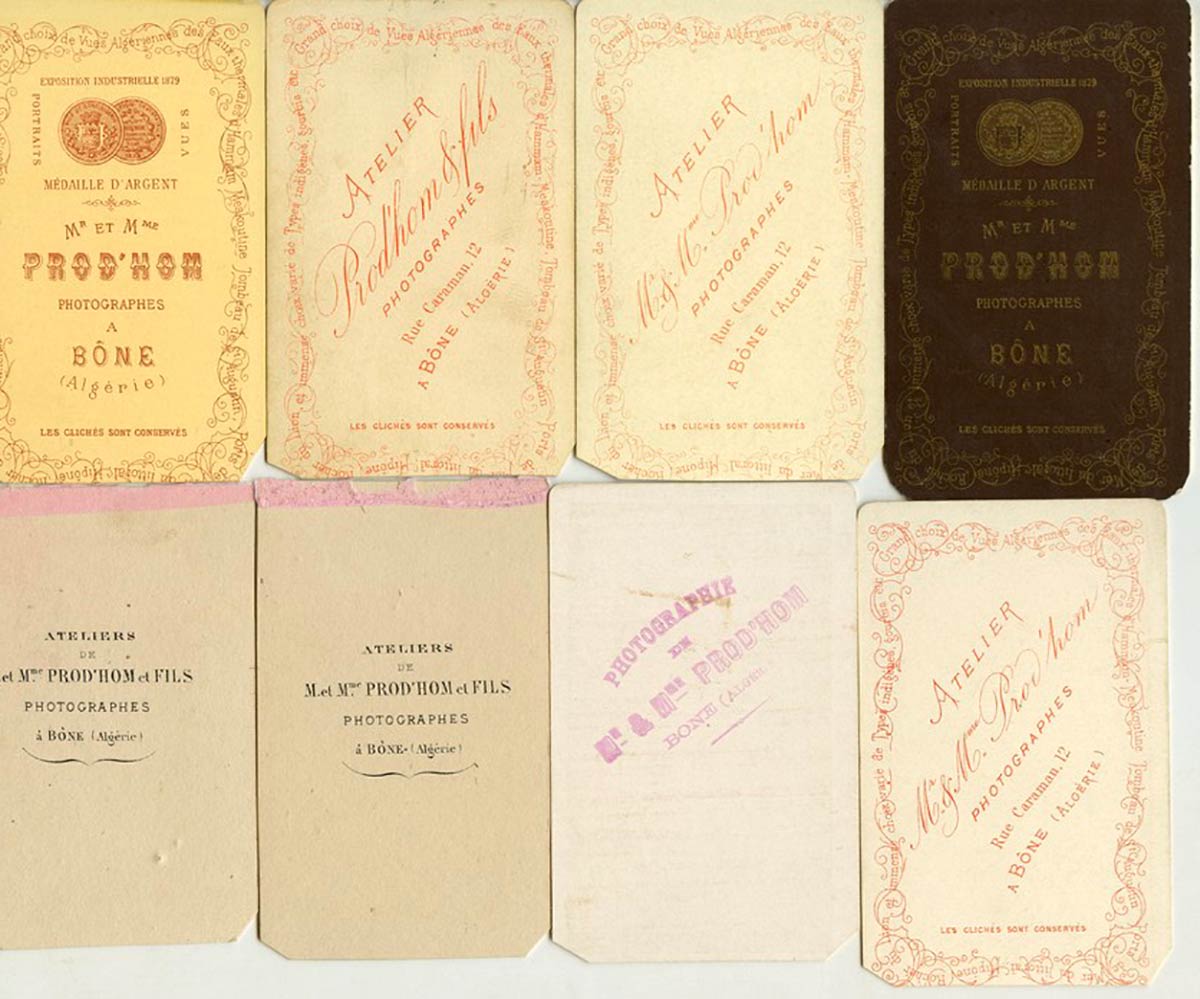 Grand choix de Vues Algériennes des Eaux thermales d'Hammam Meskoutine Tombeau de St Augustin Porte
EXPOSITION INDUSTRIELLE 1879
PORTRAITS
VUES
MÉDAILLE D'ARGENT
MR ET MME
PROD'HOM
PHOTOGRAPHES
A
BÔNE
(Algérie)
LES CLICHÉS SONT CONSERVÉS
Mer du littoral Hipone Rocher
Grand choix de Vues Algériennes des Eaux thermales d'Hammam Meskoutine Tombeau de St Augustin Porte
du lion et immense choix varié de Types indigènes, gourbis etc
ATELIER
Prod'hom & fils
PHOTOGRAPHES
Rue Caraman, 12
à BÔNE (ALGÉRIE)
LES CLICHÉS SONT CONSERVÉS
Mer du littoral Hipone Rocher
Grand choix de Vues Algériennes des Eaux thermales d'Hammam Meskoutine Tombeau de St Augustin Porte
du lion et immense choix varié de Types indigènes, gourbis etc
ATELIER
Mr. & Mme. Prod'hom
PHOTOGRAPHES
Rue Caraman, 12
à BÔNE (ALGÉRIE)
LES CLICHÉS SONT CONSERVÉS
Mer du littoral Hipone Rocher
Grand choix de Vues Algériennes des Eaux thermales d'Hammam Meskoutine Tombeau de St Augustin Porte
EXPOSITION INDUSTRIELLE 1879
PORTRAITS
VUES
MÉDAILLE D'ARGENT
MR ET MME
PROD'HOM
PHOTOGRAPHES
A
BÔNE
(Algérie)
LES CLICHÉS SONT CONSERVÉS
ATELIERS
DE
.et Mme PROD'HOM et FILS
PHOTOGRAPHES
á BÔNE (Algérie)
ATELIERS
DE
M.et Mme PROD'HOM et FILS
PHOTOGRAPHES
á BÔNE- (Algérie)
PHOTOGRAPHIE
DE
Mr & Mme PROD'HOM
BONE (ALGER
Grand choix de Vues Algériennes des Eaux thermales d'Hammam Meskoutine Tombeau de St Augustin Porte
du lion et immense choix varié de Types indigènes, gourbis etc
ATELIER
Mr. & Mme. Prod'hom
PHOTOGRAPHES
Rue Caraman, 12
à BÔNE (ALGÉRIE)
LES CLICHÉS SONT CONSERVÉS
Mer du littoral Hipone Rocher